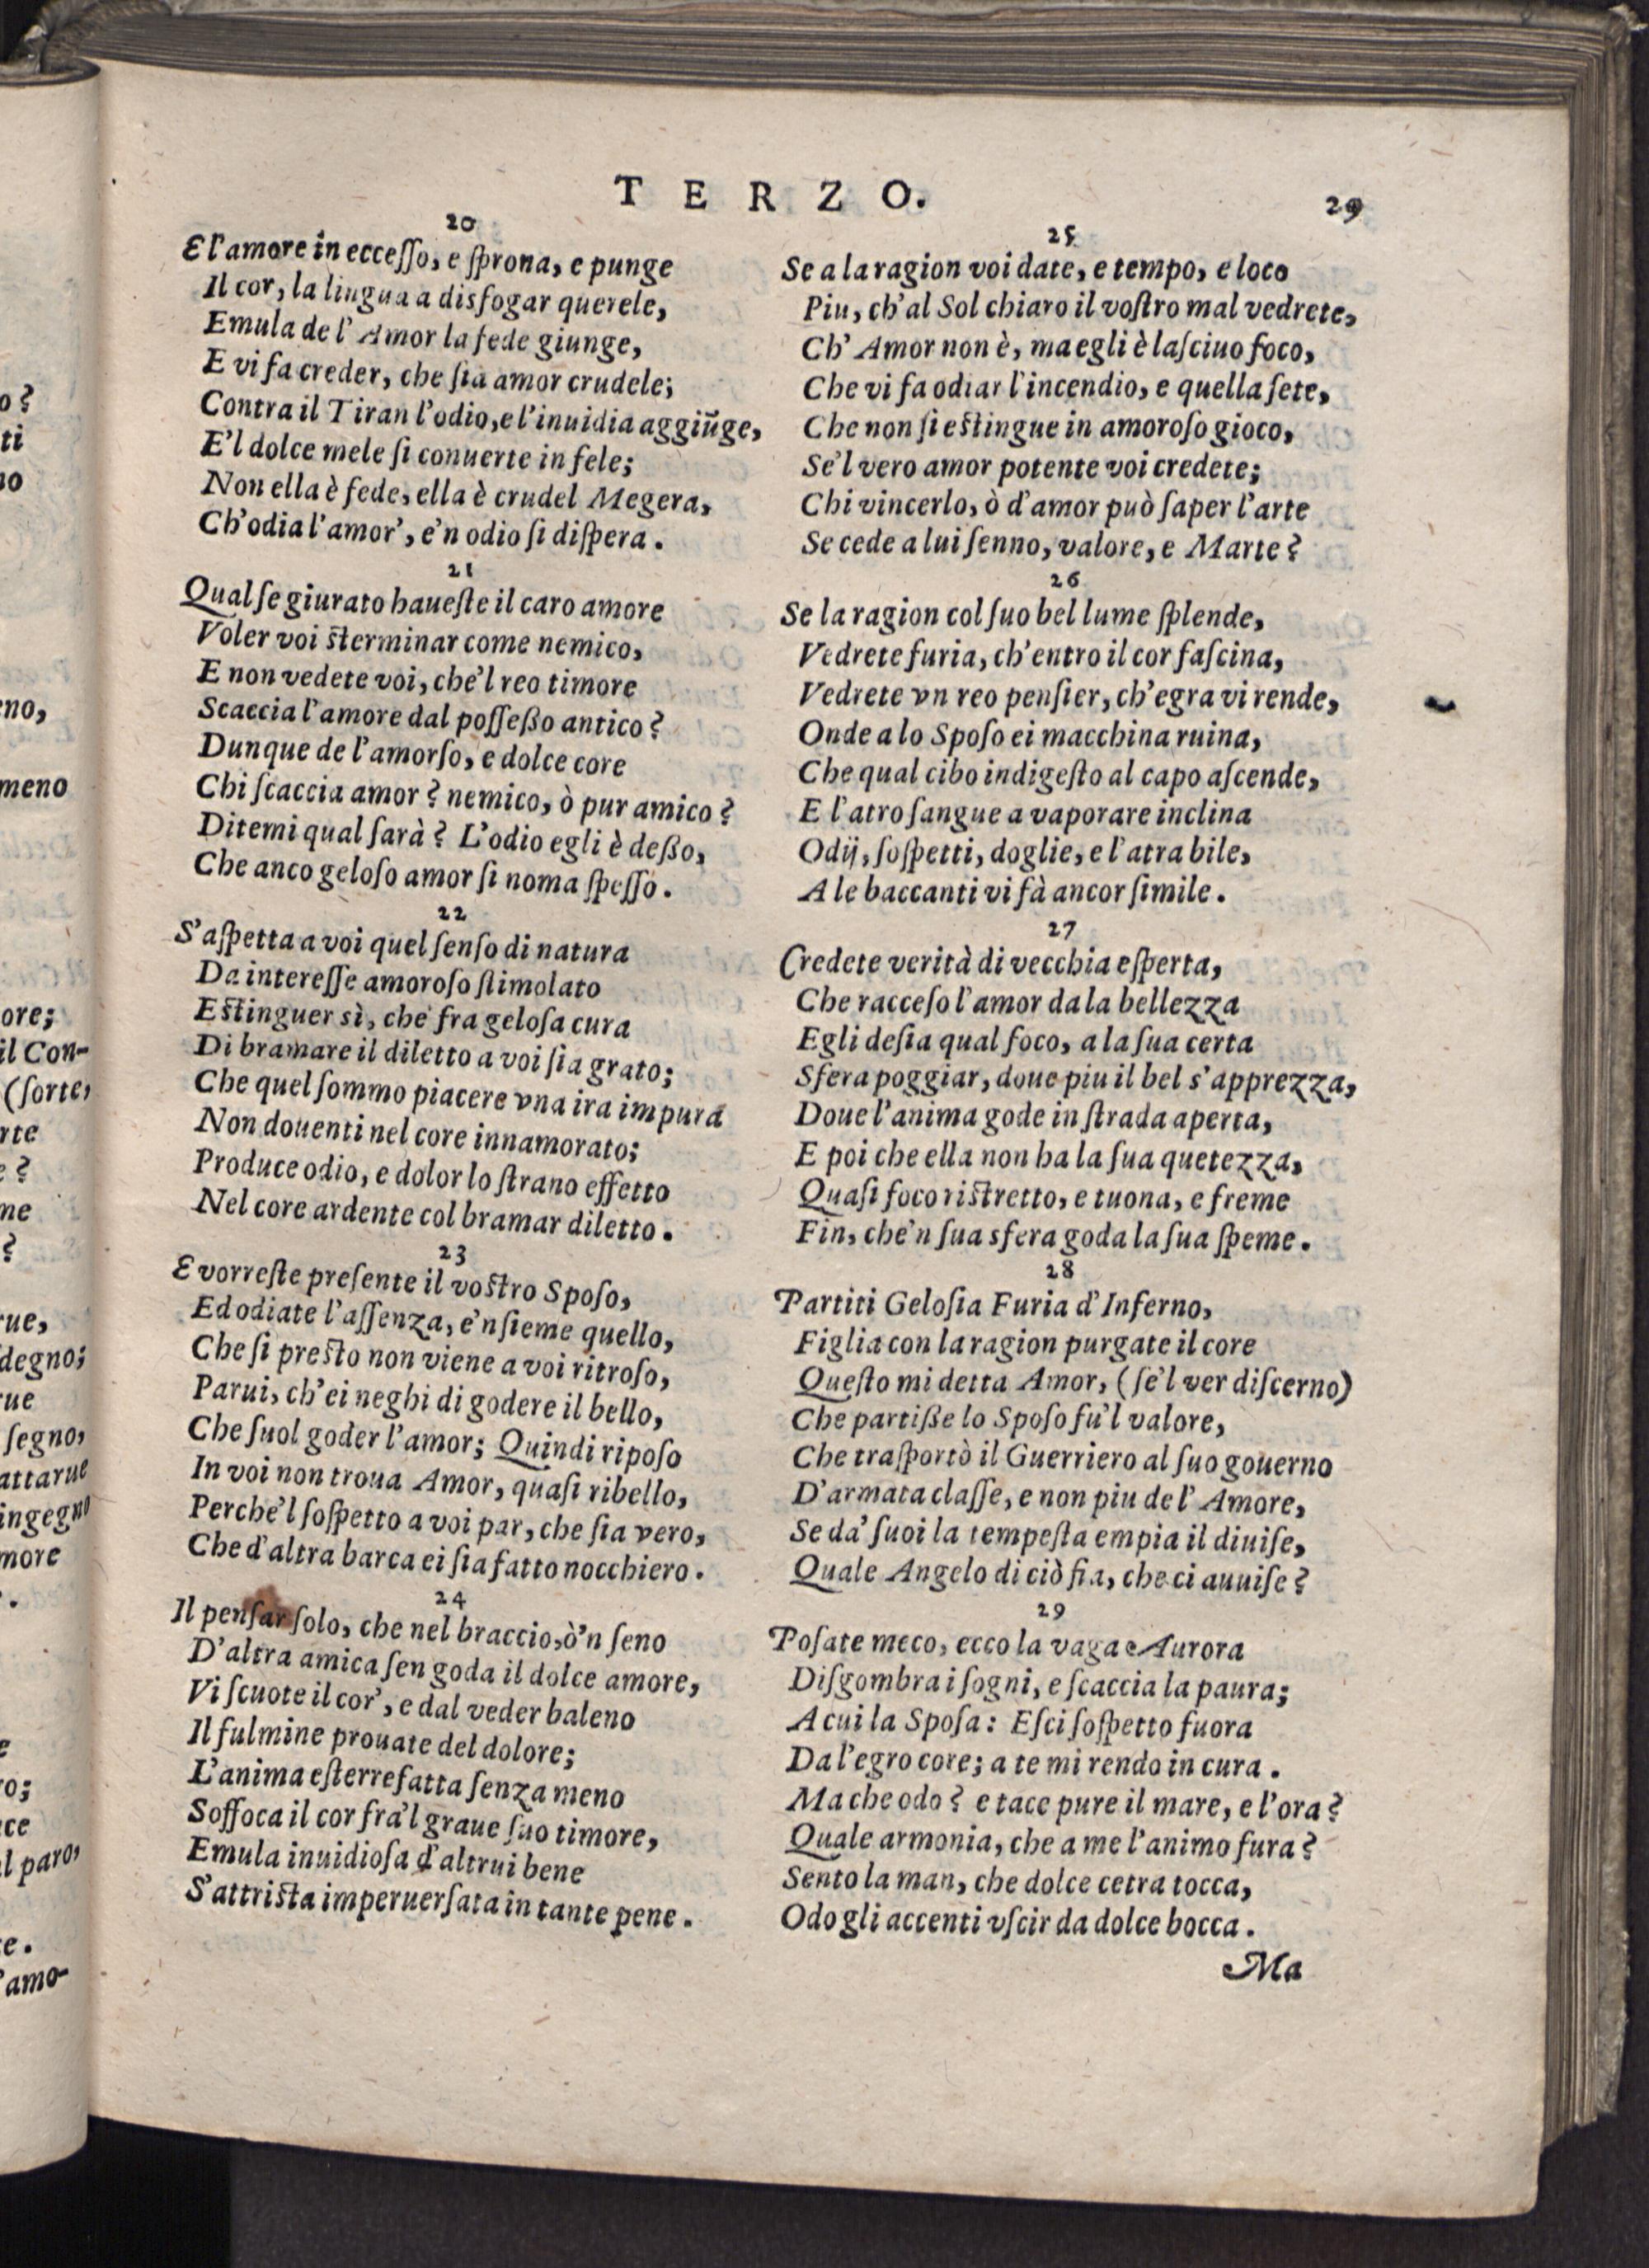 TERZO.
29
20
E l'amore in ecceſſo, e ſprona, e punge
Il cor, la lingua a disfogar querele,
Emula de l'Amor la fede giunge,
E vi fa creder, che ſia amor crudele;
Contra il Tiran l'odio, e l'inuidia aggiūge,
E'l dolce mele ſi conuerte in fele;
Non ella è fede, ella è crudel Megera,
Ch'odia l'amor', e'n odio ſi diſpera.
21
Qual ſe giurato haueſte il caro amore
Voler voi ſterminar come nemico,
E non vedete voi, che'l reo timore
Scaccia l'amore dal poſſeßo antico?
Dunque de l'amorſo, e dolce core
Chi ſcaccia amor? nemico, ò pur amico?
Ditemi qual ſarà? L'odio egli è deßo,
Che anco geloſo amor ſi noma ſpeſſo.
22
S'aſpetta a voi quel ſenſo di natura
Da intereſſe amoroſo ſtimolato
Eſtinguer sì, che fra geloſa cura
Di bramare il diletto a voi ſia grato;
Che quel ſommo piacere vna ira impura
Non douenti nel core innamorato;
Produce odio, e dolor lo ſtrano effetto
Nel core ardente col bramar diletto.
23
E vorreſte preſente il voſtro Spoſo,
Ed odiate l'aſſenza, e'nſieme quello,
Che ſi preſto non viene a voi ritroſo,
Parui, ch'ei neghi di godere il bello,
Che ſuol goder l'amor; Quindi ripoſo
In voi non troua Amor, quaſi ribello,
Perche'l ſoſpetto a voi par, che ſia vero,
Che d'altra barca ei ſia fatto nocchiero.
24
Il penſar ſolo, che nel braccio, ò'n ſeno
D'altra amica ſen goda il dolce amore,
Vi ſcuote il cor', e dal veder baleno
Il fulmine prouate del dolore;
L'anima eſterrefatta ſenza meno
Soffoca il cor fra'l graue ſuo timore,
Emula inuidioſa d'altrui bene
S'attriſta imperuerſata in tante pene.
25
Se a la ragion voi date, e tempo, e loco
Piu, ch'al Sol chiaro il voſtro mal vedrete,
Ch'Amor non è, ma egli è laſciuo foco,
Che vi fa odiar l'incendio, e quella ſete,
Che non ſi eſtingue in amoroſo gioco,
Se'l vero amor potente voi credete;
Chi vincerlo, ò d'amor può ſaper l'arte
Se cede a lui ſenno, valore, e Marte?
26
Se la ragion col ſuo bel lume ſplende,
Vedrete furia, ch'entro il cor faſcina,
Vedrete vn reo penſier, ch'egra vi rende,
Onde a lo Spoſo ei macchina ruina,
Che qual cibo indigeſto al capo aſcende,
E l'atro ſangue a vaporare inclina
Odij, ſoſpetti, doglie, e l'atra bile,
A le baccanti vi fà ancor ſimile.
27
Credete verità di vecchia eſperta,
Che racceſo l'amor da la bellezza
Egli deſia qual foco, a la ſua certa
Sfera poggiar, doue piu il bel s'apprezza,
Doue l'anima gode in ſtrada aperta,
E poi che ella non ha la ſua quetezza,
Quaſi foco riſtretto, e tuona, e freme
Fin, che'n ſua sfera goda la ſua ſpeme.
28
Partiti Geloſia Furia d'Inferno,
Figlia con la ragion purgate il core
Queſto mi detta Amor, (ſe'l ver diſcerno)
Che partiße lo Spoſo fu'l valore,
Che traſportò il Guerriero al ſuo gouerno
D'armata claſſe, e non piu de l'Amore,
Se da' ſuoi la tempeſta empia il diuiſe,
Quale Angelo di ciò fia, che ci auuiſe?
29
Poſate meco, ecco la vaga Aurora
Diſgombra i ſogni, e ſcaccia la paura;
A cui la Spoſa: Eſci ſoſpetto fuora
Da l'egro core; a te mi rendo in cura.
Ma che odo? e tace pure il mare, e l'ora?
Quale armonia, che a me l'animo fura?
Sento la man, che dolce cetra tocca,
Odo gli accenti vſcir da dolce bocca.
Ma